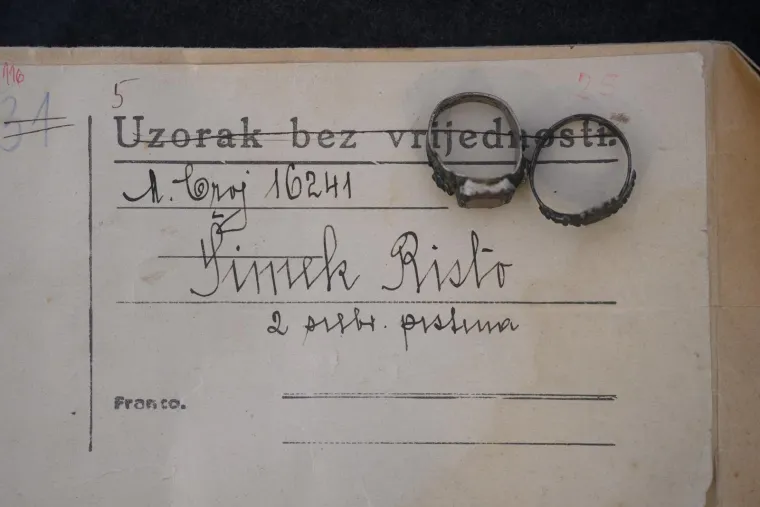 116
31
5
25
Uzorak bez vrijednosti.
M. Broj 16241
Šimek Risto
2 srebr. prstena
Franco.